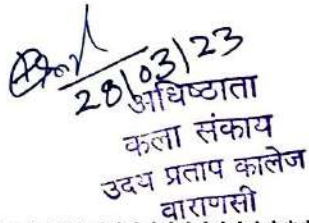 28/03/23
अधिष्ठाता
कला संकाय
उदय प्रताप कालेज
वाराणसी